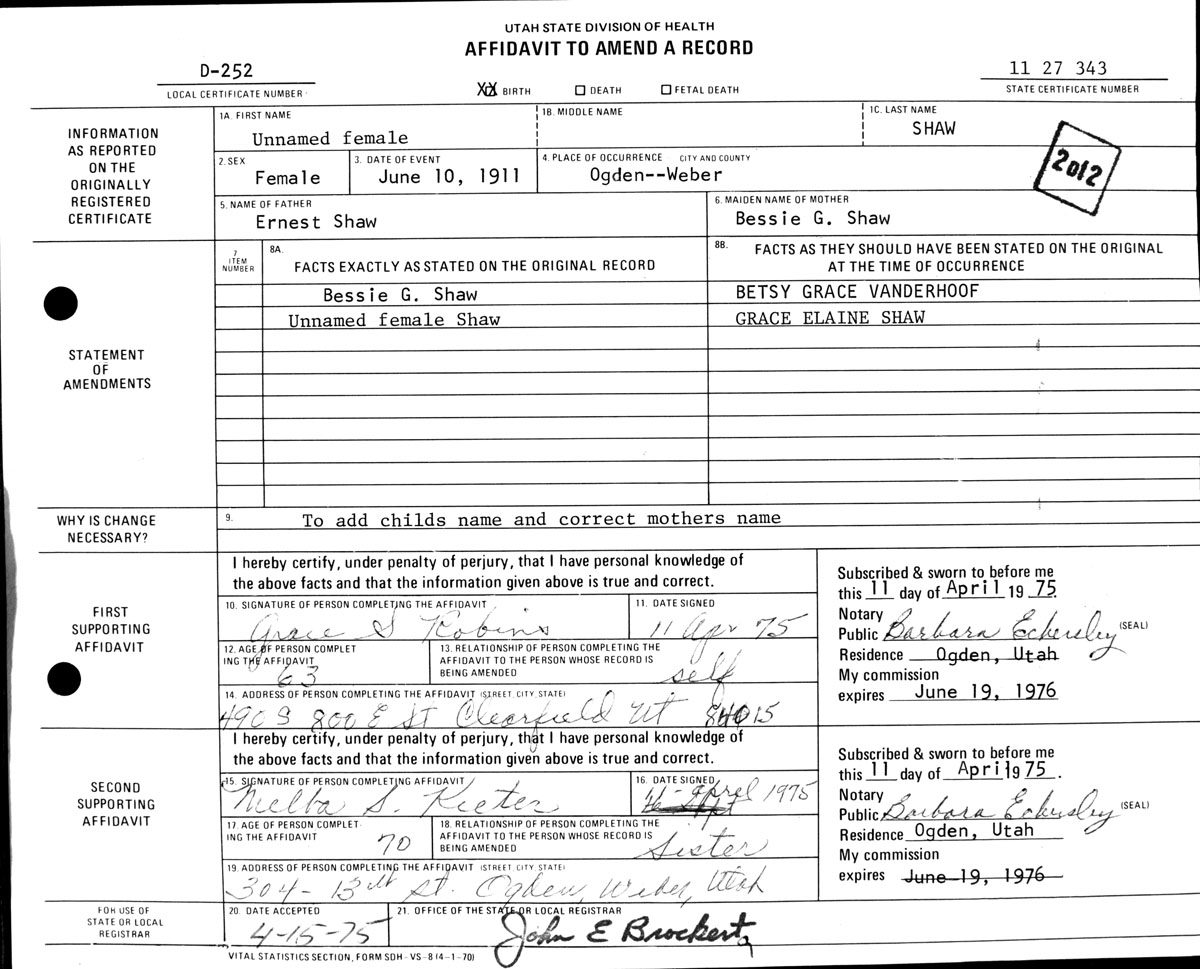 UTAH STATE DIVISION OF HEALTH
AFFIDAVIT TO AMEND A RECORD
D-252
LOCAL CERTIFICATE NUMBER
XX BIRTH
DEATH
FETAL DEATH
11 27 343
STATE CERTIFICATE NUMBER
INFORMATION
AS REPORTED
ON THE
ORIGINALLY
REGISTERED
CERTIFICATE
1A. FIRST NAME
Unnamed female
1B. MIDDLE NAME
1C. LAST NAME
SHAW
2. SEX
Female
3. DATE OF EVENT
June 10, 1911
4. PLACE OF OCCURRENCE CITY AND COUNTY
Ogden--Weber
2012
5. NAME OF FATHER
Ernest Shaw
6. MAIDEN NAME OF MOTHER
Bessie G. Shaw
STATEMENT
OF
AMENDMENTS
7
ITEM
NUMBER
8A.
FACTS EXACTLY AS STATED ON THE ORIGINAL RECORD
8B.
FACTS AS THEY SHOULD HAVE BEEN STATED ON THE ORIGINAL
AT THE TIME OF OCCURRENCE
Bessie G. Shaw
BETSY GRACE VANDERHOOF
Unnamed female Shaw
GRACE ELAINE SHAW
WHY IS CHANGE
NECESSARY?
9.
To add childs name and correct mothers name
FIRST
SUPPORTING
AFFIDAVIT
I hereby certify, under penalty of perjury, that I have personal knowledge of
the above facts and that the information given above is true and correct.
10. SIGNATURE OF PERSON COMPLETING THE AFFIDAVIT
Grace S Robins
11. DATE SIGNED
11 Apr 75
12. AGE OF PERSON COMPLET
ING THE AFFIDAVIT
63
13. RELATIONSHIP OF PERSON COMPLETING THE
AFFIDAVIT TO THE PERSON WHOSE RECORD IS
BEING AMENDED
self
14. ADDRESS OF PERSON COMPLETING THE AFFIDAVIT (STREET, CITY, STATE)
490 S 800 E St Clearfield Ut 84015
Subscribed & sworn to before me
this 11 day of April 19 75
Notary
Public Barbara Eckersley (SEAL)
Residence Ogden, Utah
My commission
expires June 19, 1976
SECOND
SUPPORTING
AFFIDAVIT
I hereby certify, under penalty of perjury, that I have personal knowledge of
the above facts and that the information given above is true and correct.
15. SIGNATURE OF PERSON COMPLETING AFFIDAVIT
Melba S. Kieter
16. DATE SIGNED
11 - april 1975
17. AGE OF PERSON COMPLET
ING THE AFFIDAVIT
70
18. RELATIONSHIP OF PERSON COMPLETING THE
AFFIDAVIT TO THE PERSON WHOSE RECORD IS
BEING AMENDED
Sister
19. ADDRESS OF PERSON COMPLETING THE AFFIDAVIT (STREET, CITY, STATE)
304 - 13th St. Ogden, Weber, Utah
Subscribed & sworn to before me
this 11 day of April 19 75.
Notary
Public Barbara Eckersley (SEAL)
Residence Ogden, Utah
My commission
expires June 19, 1976
FOR USE OF
STATE OR LOCAL
REGISTRAR
20. DATE ACCEPTED
4-15-75
21. OFFICE OF THE STATE OR LOCAL REGISTRAR
John E Brockert
VITAL STATISTICS SECTION, FORM SDH - VS - 8 (4-1-70)